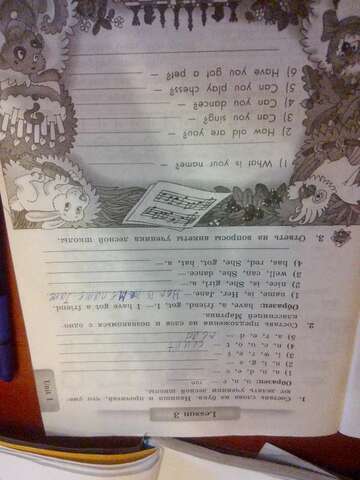 Unit 1
Lesson 3
1. Составь слова из букв. Напиши и прочитай, что умеют делать ученики лесной школы.
Образец: u, n, r — run
2) n, i, g, s —
5) a, r, e, d — read
2. Составь предложения из слов и познакомься с одноклассницей Мартина.
Образец: have, a, friend, got, I. — I have got a friend.
1) name, is, Her, Jane. — Her is name Jane
2) nice, is, She, girl, a. —
3) well, can, She, dance. —
4) has, red, She, got, hat, a. —
3. Ответь на вопросы анкеты ученика лесной школы.
1) What is your name? —
2) How old are you? —
3) Can you sing? —
4) Can you dance? —
5) Can you play chess? —
6) Have you got a pet? —